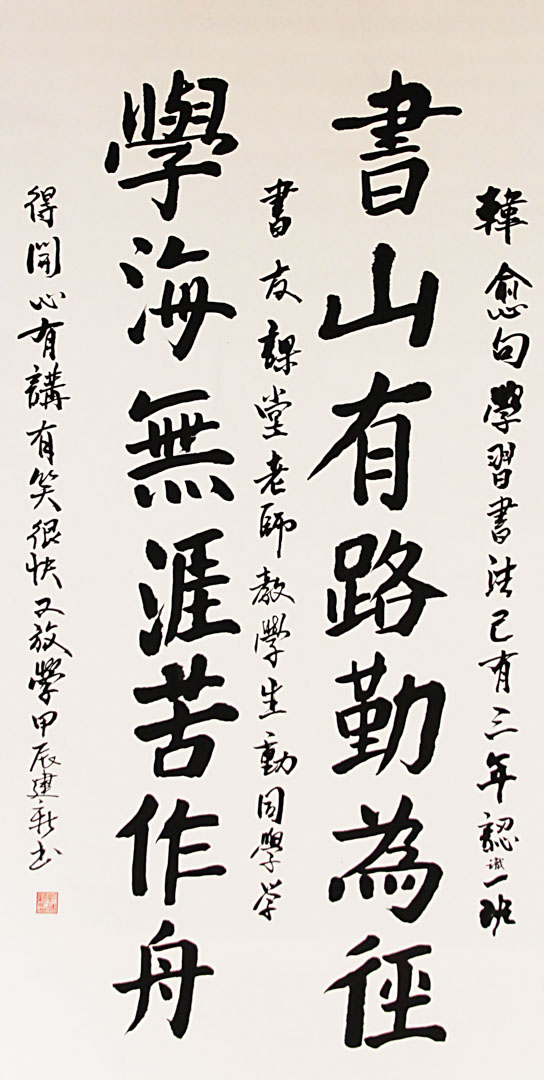 韓愈句學習書法已有三年認識一班
書山有路勤為徑
書友課堂老師教學生動同學學
學海無涯苦作舟
得開心有講有笑很快又放學甲辰建新書